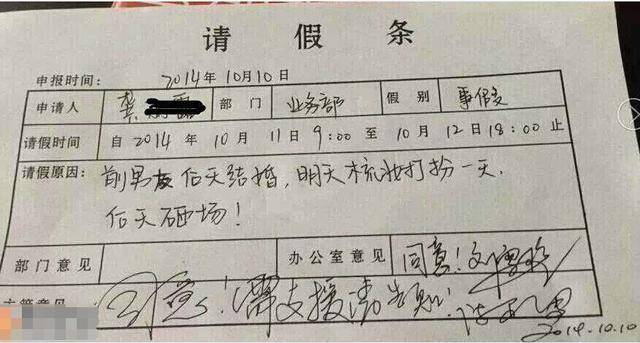 请假条
申报时间: 2014年10月10日
申请人 龚 部门 业务部 假别 事假
请假时间 自 2014 年 10 月 11 日 9:00 至 10 月 12 日 18:00 止
请假原因: 前男友后天结婚,明天梳妆打扮一天.
后天砸场!
部门意见 办公室意见 同意!
主管意见 同意!需支援请告知!
2014.10.10